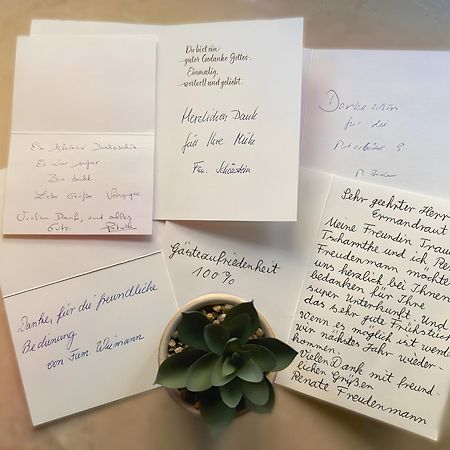 Ein kleines Dankeschön
Es war super
Bis bald
Liebe Grüße
Vielen Dank, und alles
Gute.
Du bist ein
guter Gedanke Gottes.
Einmalig,
wertvoll und geliebt.
Herzlichen Dank
für Ihre Mühe
Fam. Schönstein
Dankeschön
für die
Mitarbeiter
Danke, für die freundliche
Bedinung
von Fam. Weimann
Gästezufriedenheit
100%
Sehr geehrter Herr
Ermandraut
Meine Freundin Trau
Tschamtke und ich Re
Freudenmann möchte
uns herzlich bei Ihnen
bedanken für Ihre
super Unterkunft. Und
das sehr gute Frühstück
Wenn es möglich ist werde
wir nächstes Jahr wieder-
kommen.
Vielen Dank mit freund-
lichen Grüßen
Renate Freudenmann